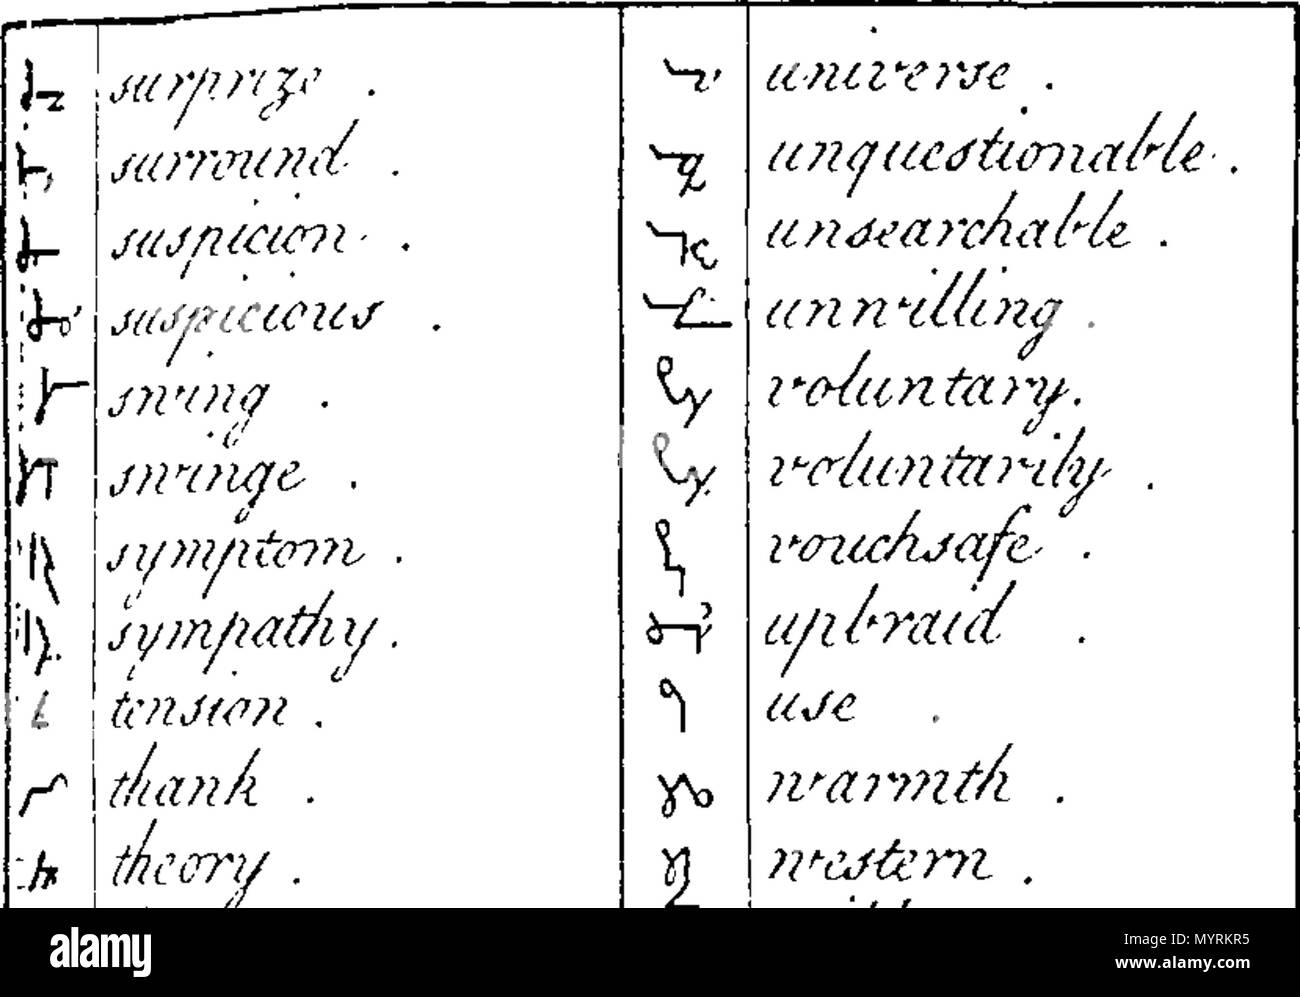 surprize .
surround .
suspicion .
suspicious .
swing .
swinge .
symptom .
sympathy .
tension .
thank .
theory .
universe .
unquestionable .
unsearchable .
unwilling .
voluntary .
voluntarily .
vouchsafe .
upbraid .
use .
warmth .
western .
alamy
Image ID: MYRKR5
www.alamy.com